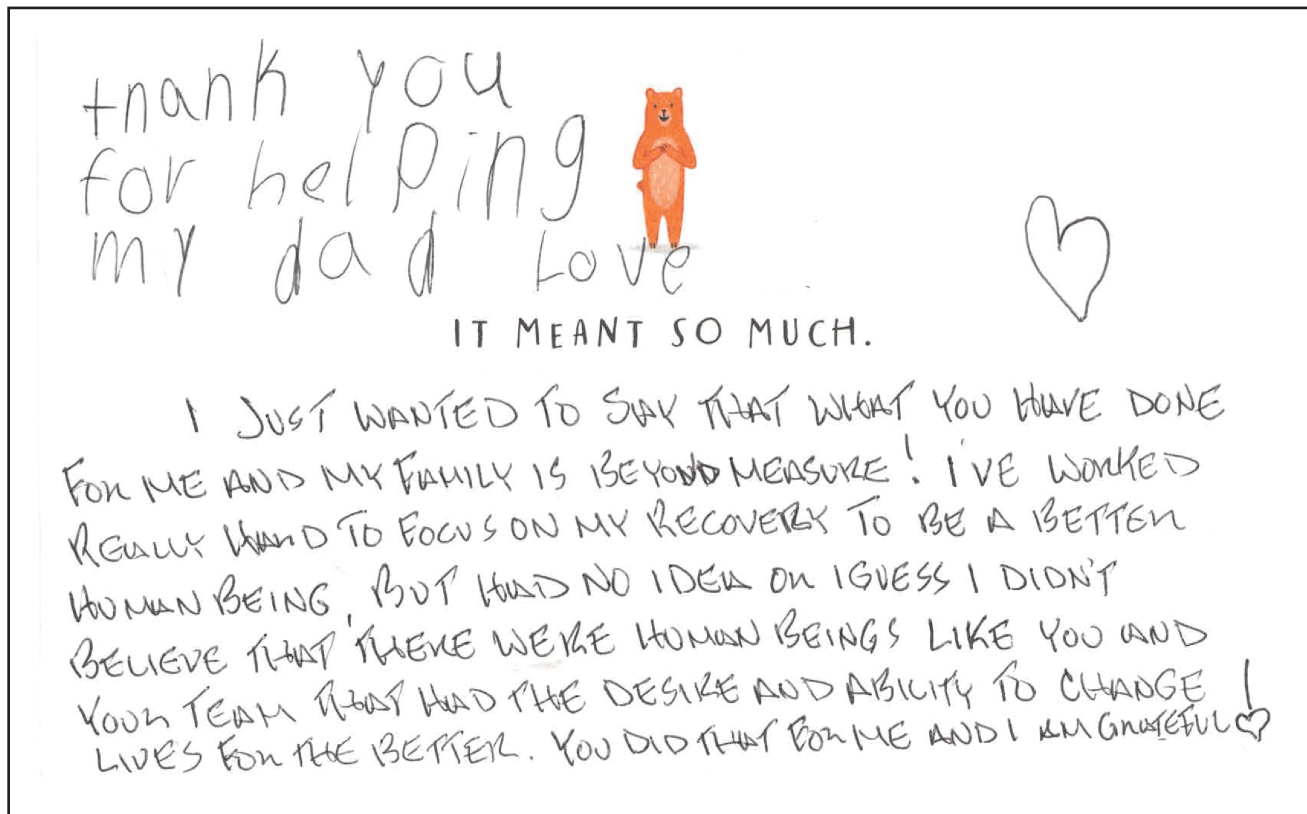 thank you
for helping
my dad Love
IT MEANT SO MUCH.
I JUST WANTED TO SAY THAT WHAT YOU HAVE DONE
FOR ME AND MY FAMILY IS BEYOND MEASURE! I'VE WORKED
REALLY HARD TO FOCUS ON MY RECOVERY TO BE A BETTER
HUMAN BEING, BUT HAD NO IDEA OR I GUESS I DIDN'T
BELIEVE THAT THERE WERE HUMAN BEINGS LIKE YOU AND
YOUR TEAM THAT HAD THE DESIRE AND ABILITY TO CHANGE
LIVES FOR THE BETTER. YOU DID THAT FOR ME AND I AM GRATEFUL!